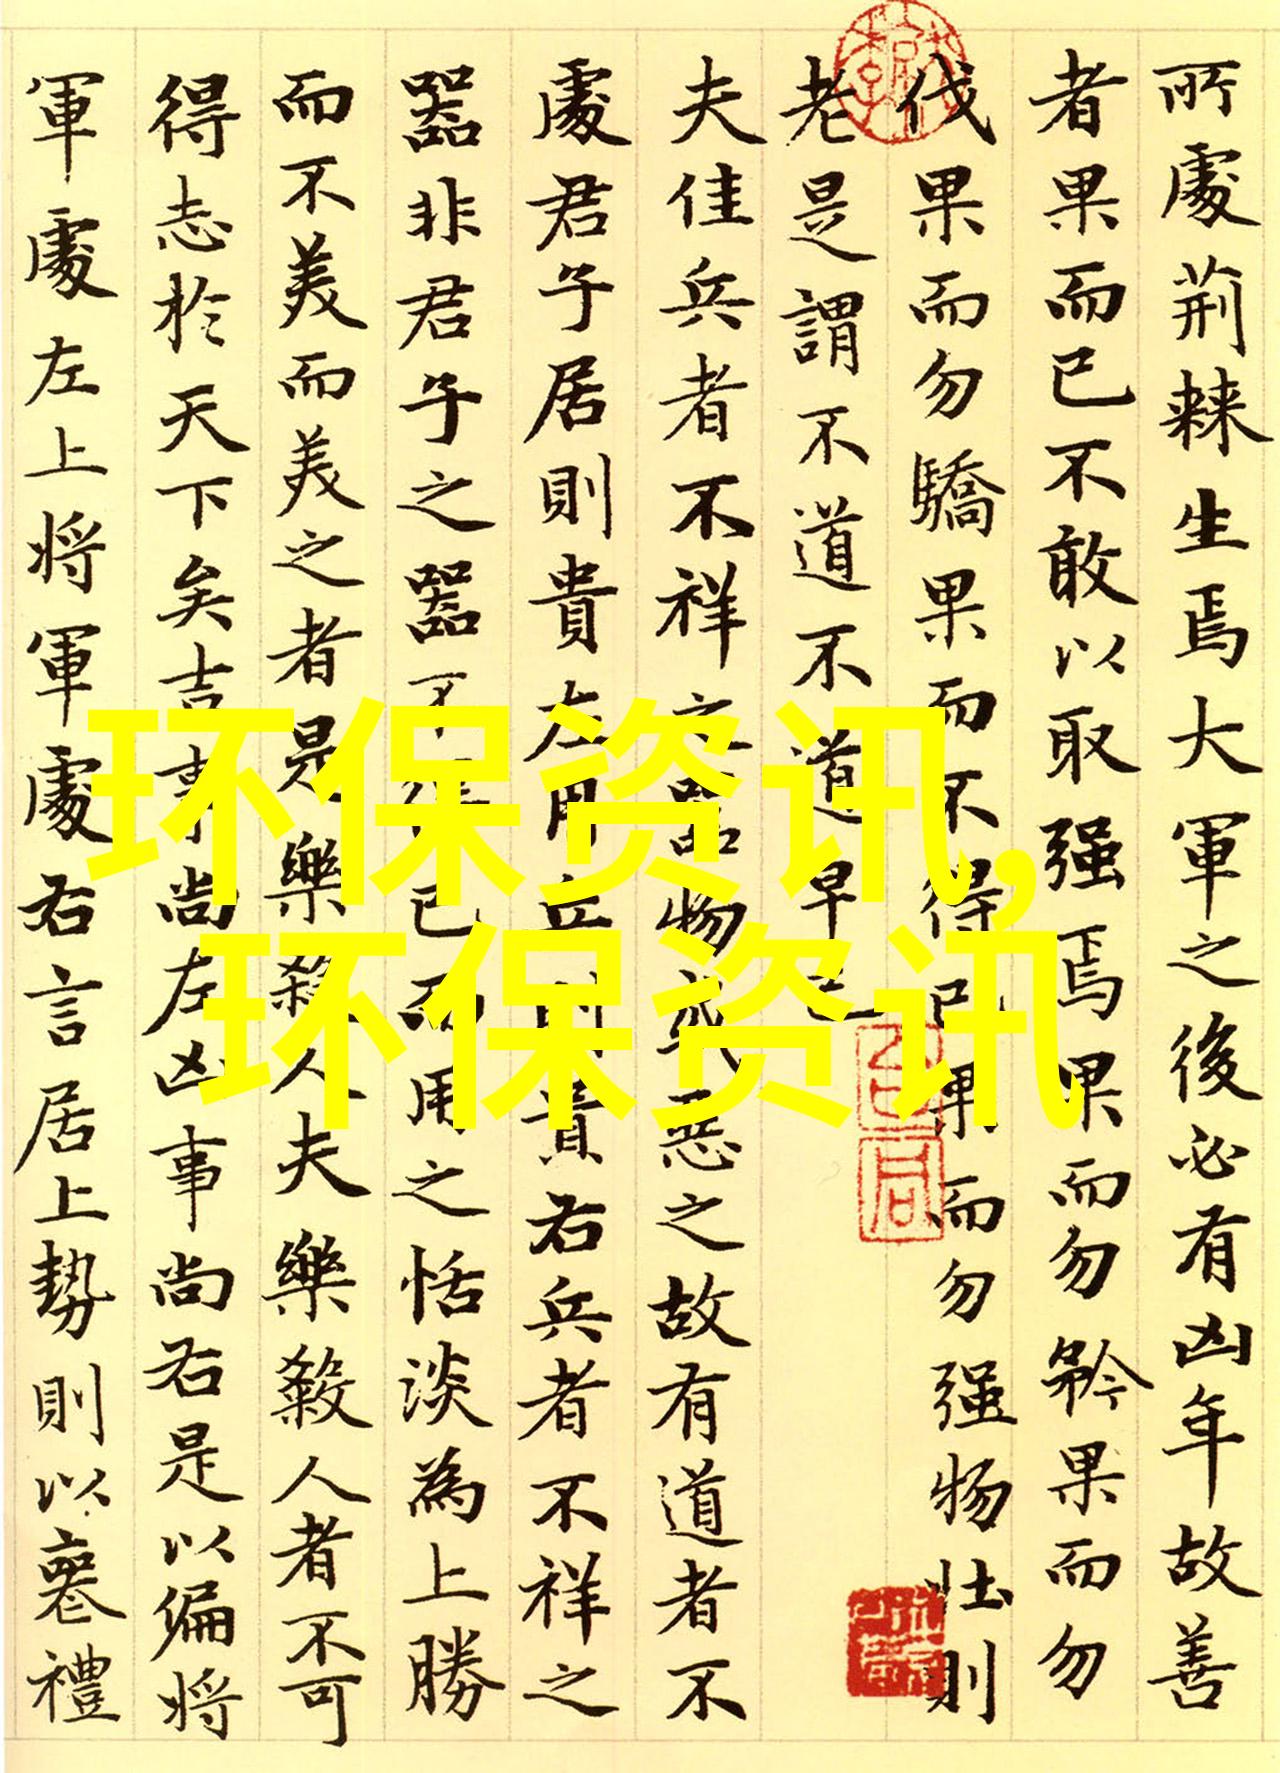 所處荊棘生焉大軍之後必有凶年故善
者果而已不敢以取强焉果而勿矜果而勿
伐果而勿驕果而不得已果而勿强物壮則
老是謂不道不道早已
夫佳兵者不祥之器物或惡之故有道者不
處君子居則貴左用兵則貴右兵者不祥之
器非君子之器不得已而用之恬淡為上勝
而不美而美之者是樂殺人夫樂殺人者不可
得志於天下矣吉事尚左凶事尚右是以偏將
軍處左上將軍處右言居上勢則以喪禮
环保资讯,
环保资讯